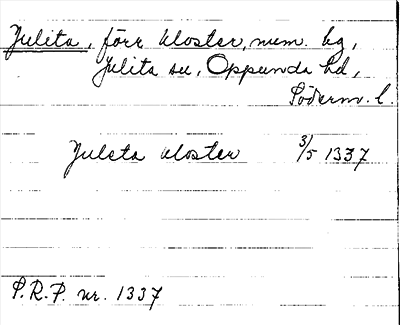 Julita, förr kloster, num. bg,
Julita sn, Oppunda hd,
Söderm. l.
Juleta kloster 3/5 1337
P.R.P. nr. 1337